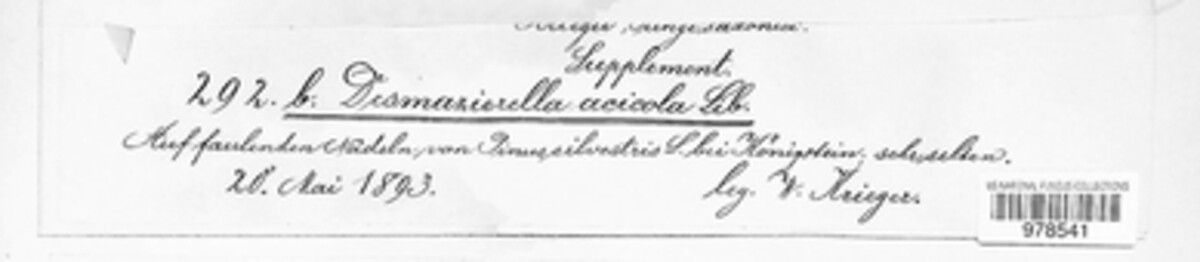 Krieger, Fungi saxonici.
Supplement.
292. b. Desmazierella acicola Lib.
Auf faulenden Nadeln von Pinus silvestris L. bei Königstein, sehr selten.
Mai 1893.
leg. W. Krieger.
US NATIONAL FUNGUS COLLECTIONS
978541